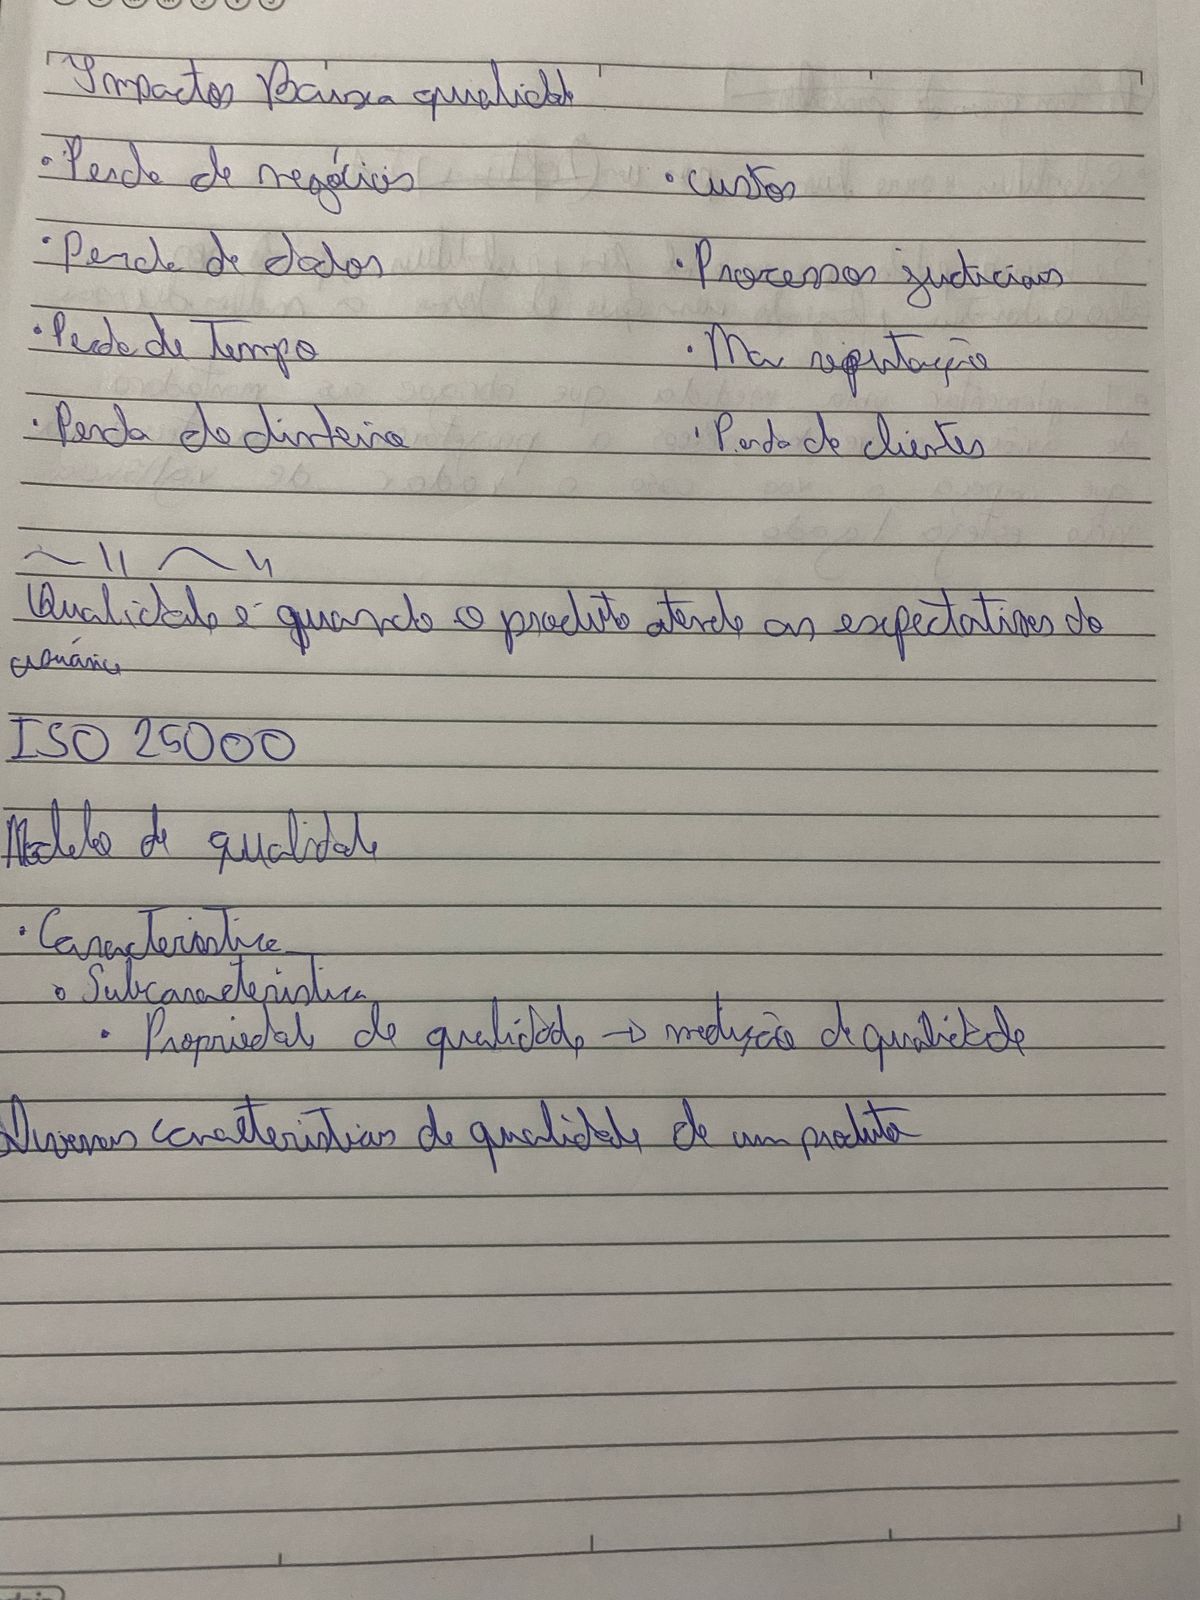 Impactos Baixa qualidade
• Perda de negócios
• custos
• Perda de dados
• Processos judiciais
• Perda de Tempo
• Ma reputação
• Perda de dinheiro
• Perda de clientes
~ 11 ~ 11
Qualidade é quando o produto atende as expectativas do
usuário
ISO 25000
Modelo de qualidade
• Caracteristica
o Subcaracteristica
• Propriedade de qualidade → medição de qualidade
Diversas caracteristicas de qualidade de um produto